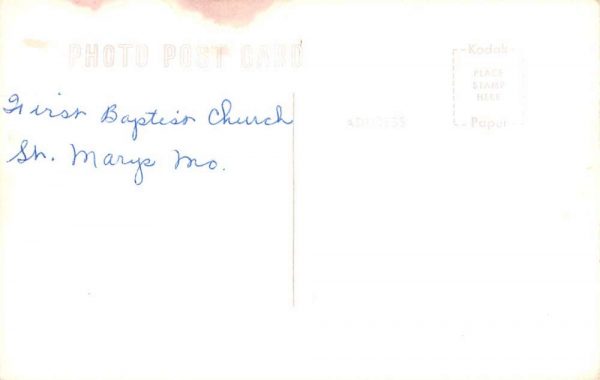 PHOTO POST CARD
First Baptist Church
St. Marys Mo.
ADDRESS
Kodak
PLACE
STAMP
HERE
Paper